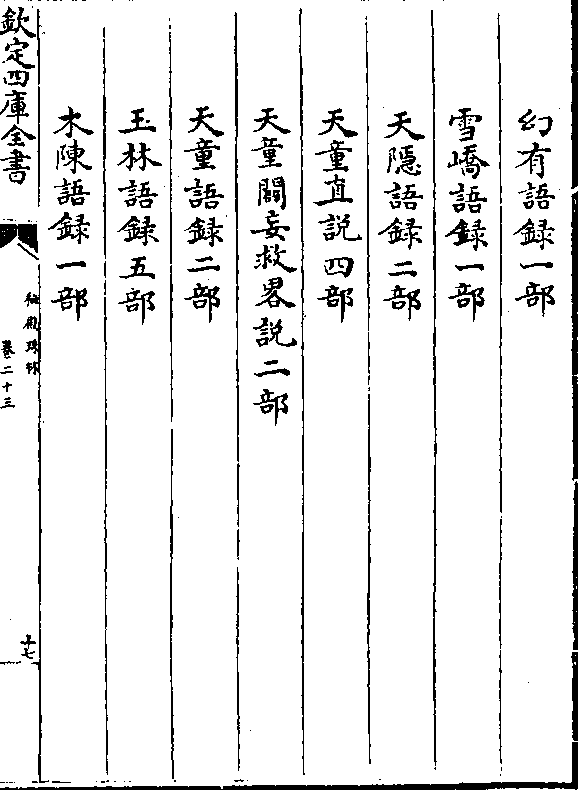 幻有語録一部
雪嶠語録一部
天隱語録二部
天童直説四部
天童闢妄救畧説二部
天童語録二部
玉林語録五部
木陳語録一部
欽定四庫全書
秘殿珠林
卷二十三
十七